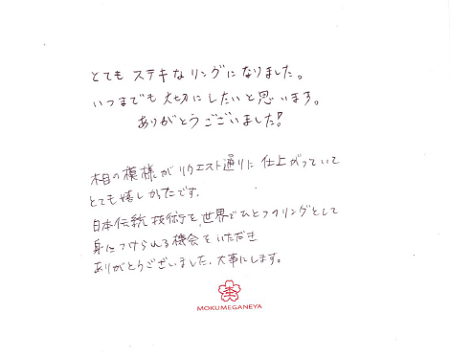 とても ステキな リングに なりました。
いつまでも 大切に したいと 思います。
ありがとうございました!
木目の模様が リクエスト通りに 仕上がっていて
とても嬉しかったです。
日本伝統技術を、世界でひとつのリングとして
身につけられる機会をいただき
ありがとうございました。大事にします。
MOKUMEGANEYA